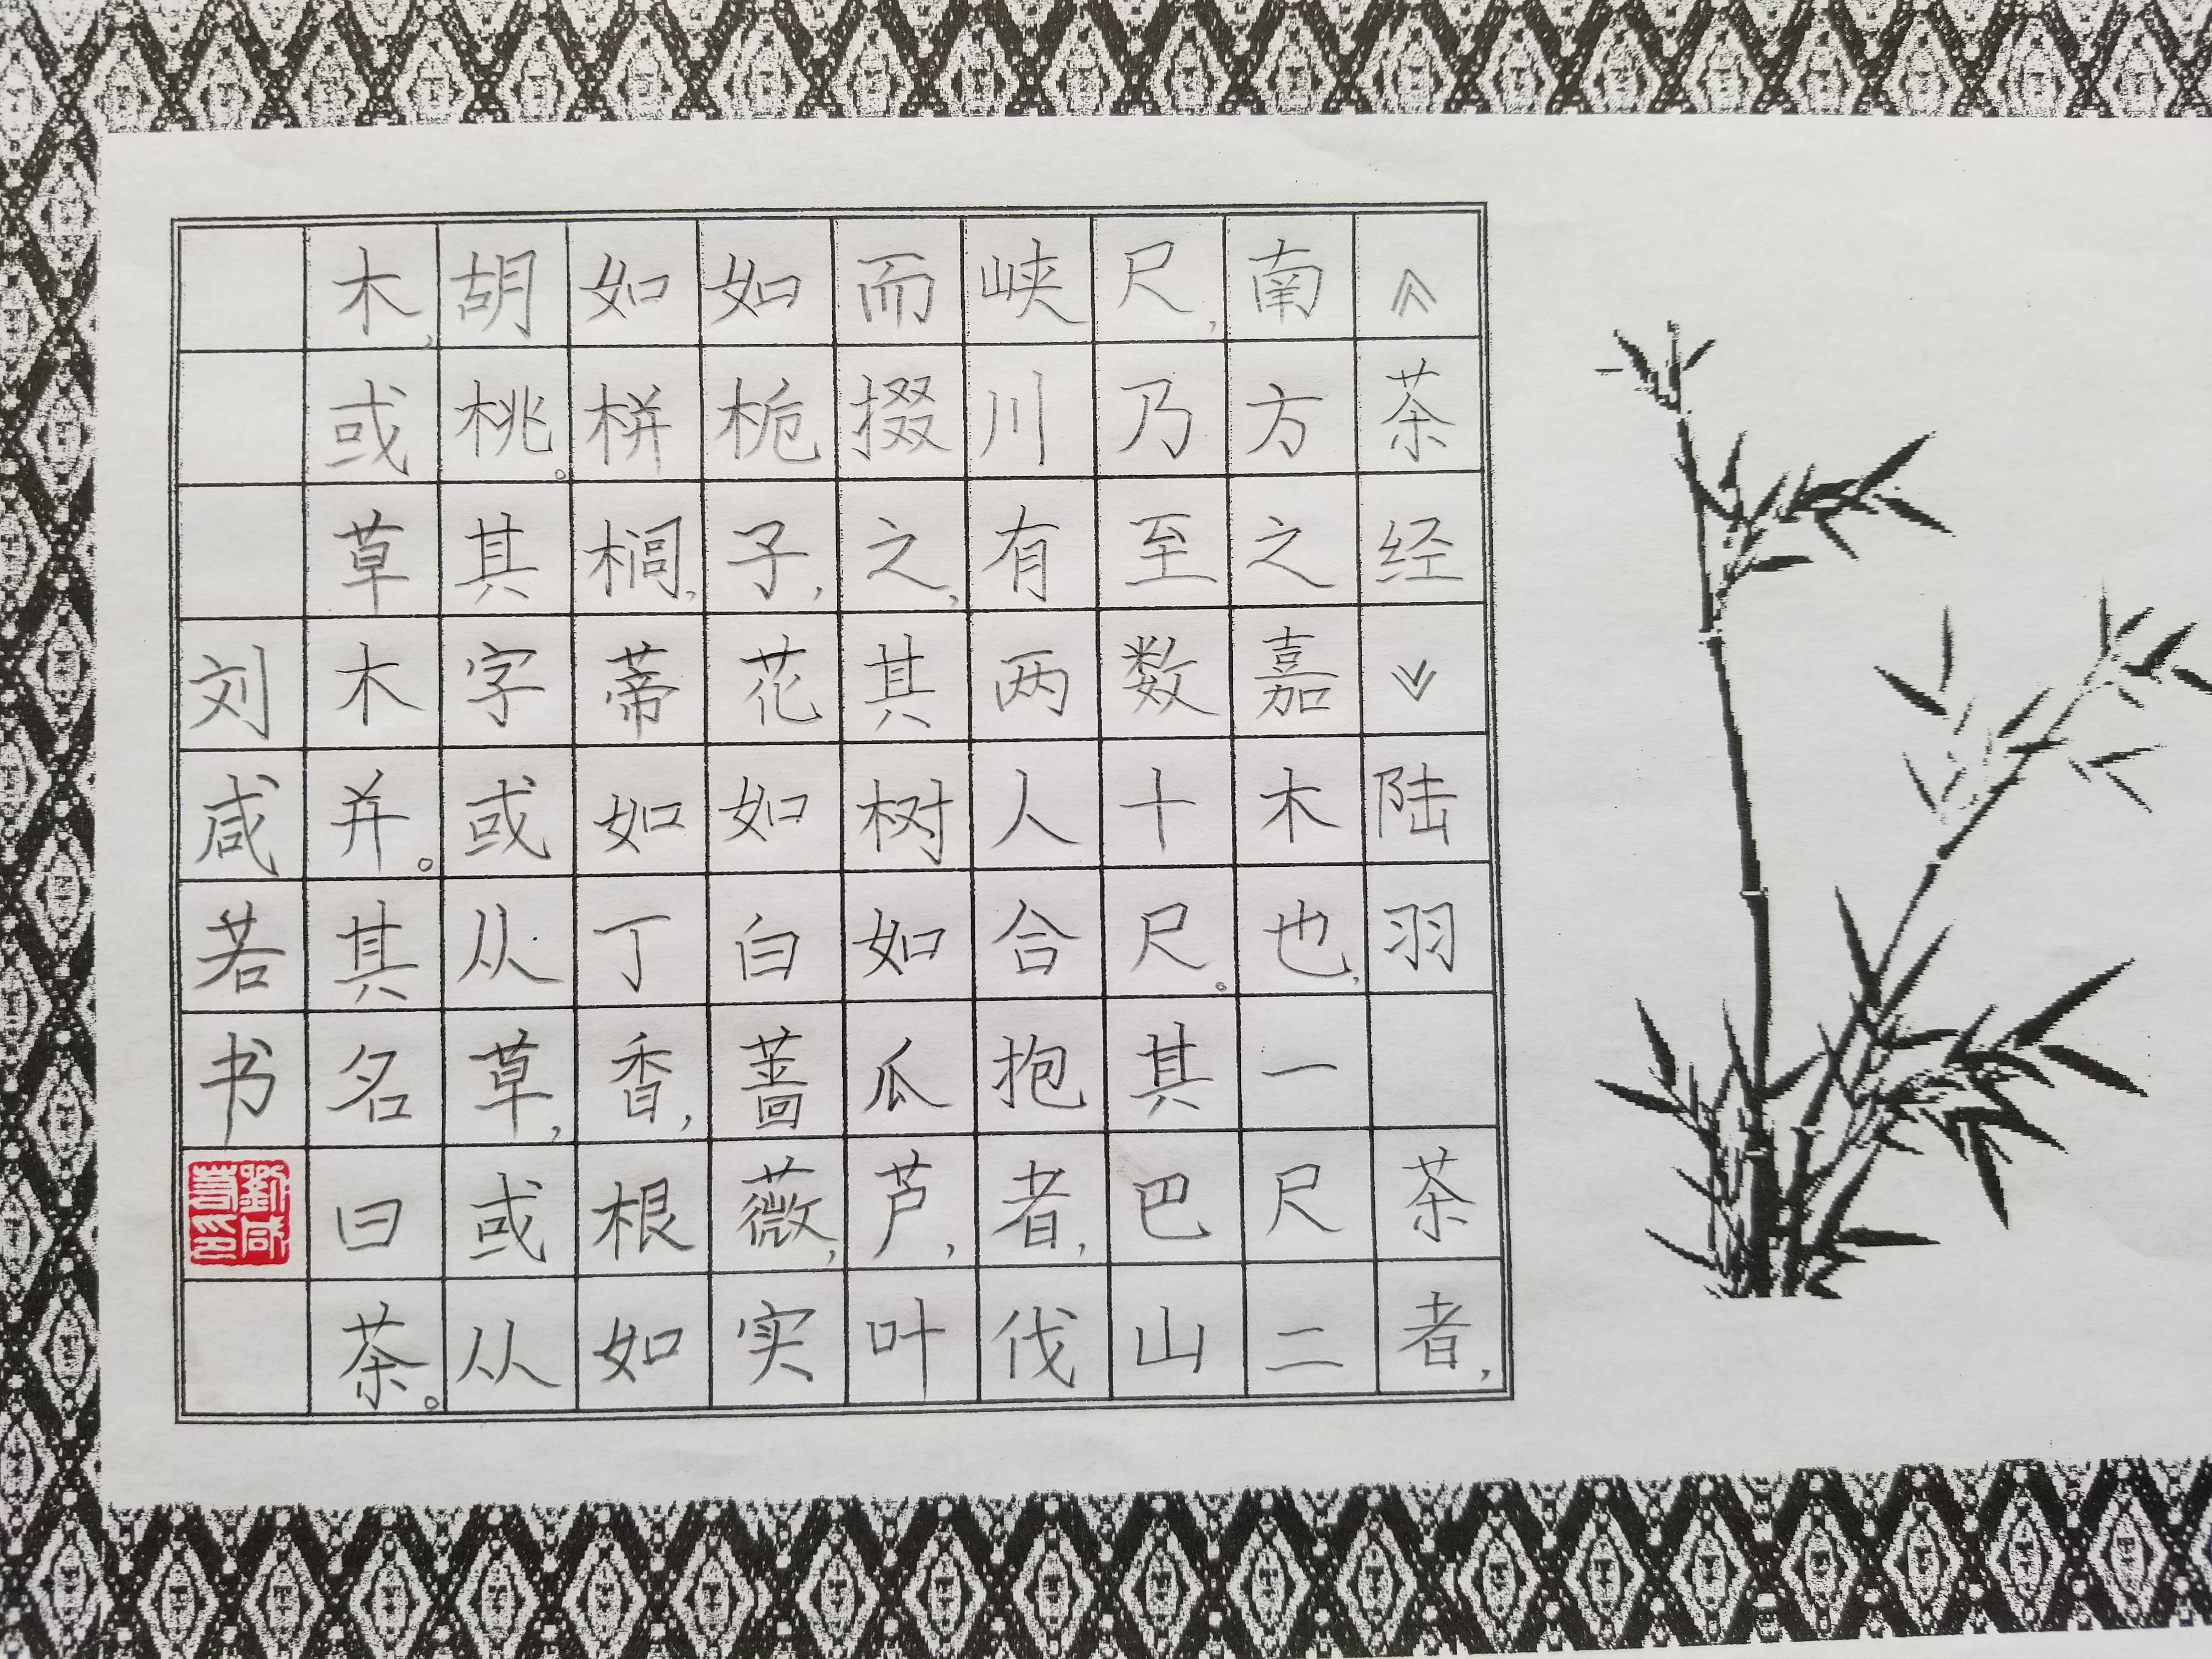 《茶经》陆羽 茶者，
南方之嘉木也，一尺二
尺，乃至数十尺。其巴山
峡川有两人合抱者，伐
而掇之，其树如瓜芦，叶
如栀子，花如白蔷薇，实
如栟榈，蒂如丁香，根如
胡桃。其字或从草，或从
木，或草木并。其名曰茶。
刘咸若书